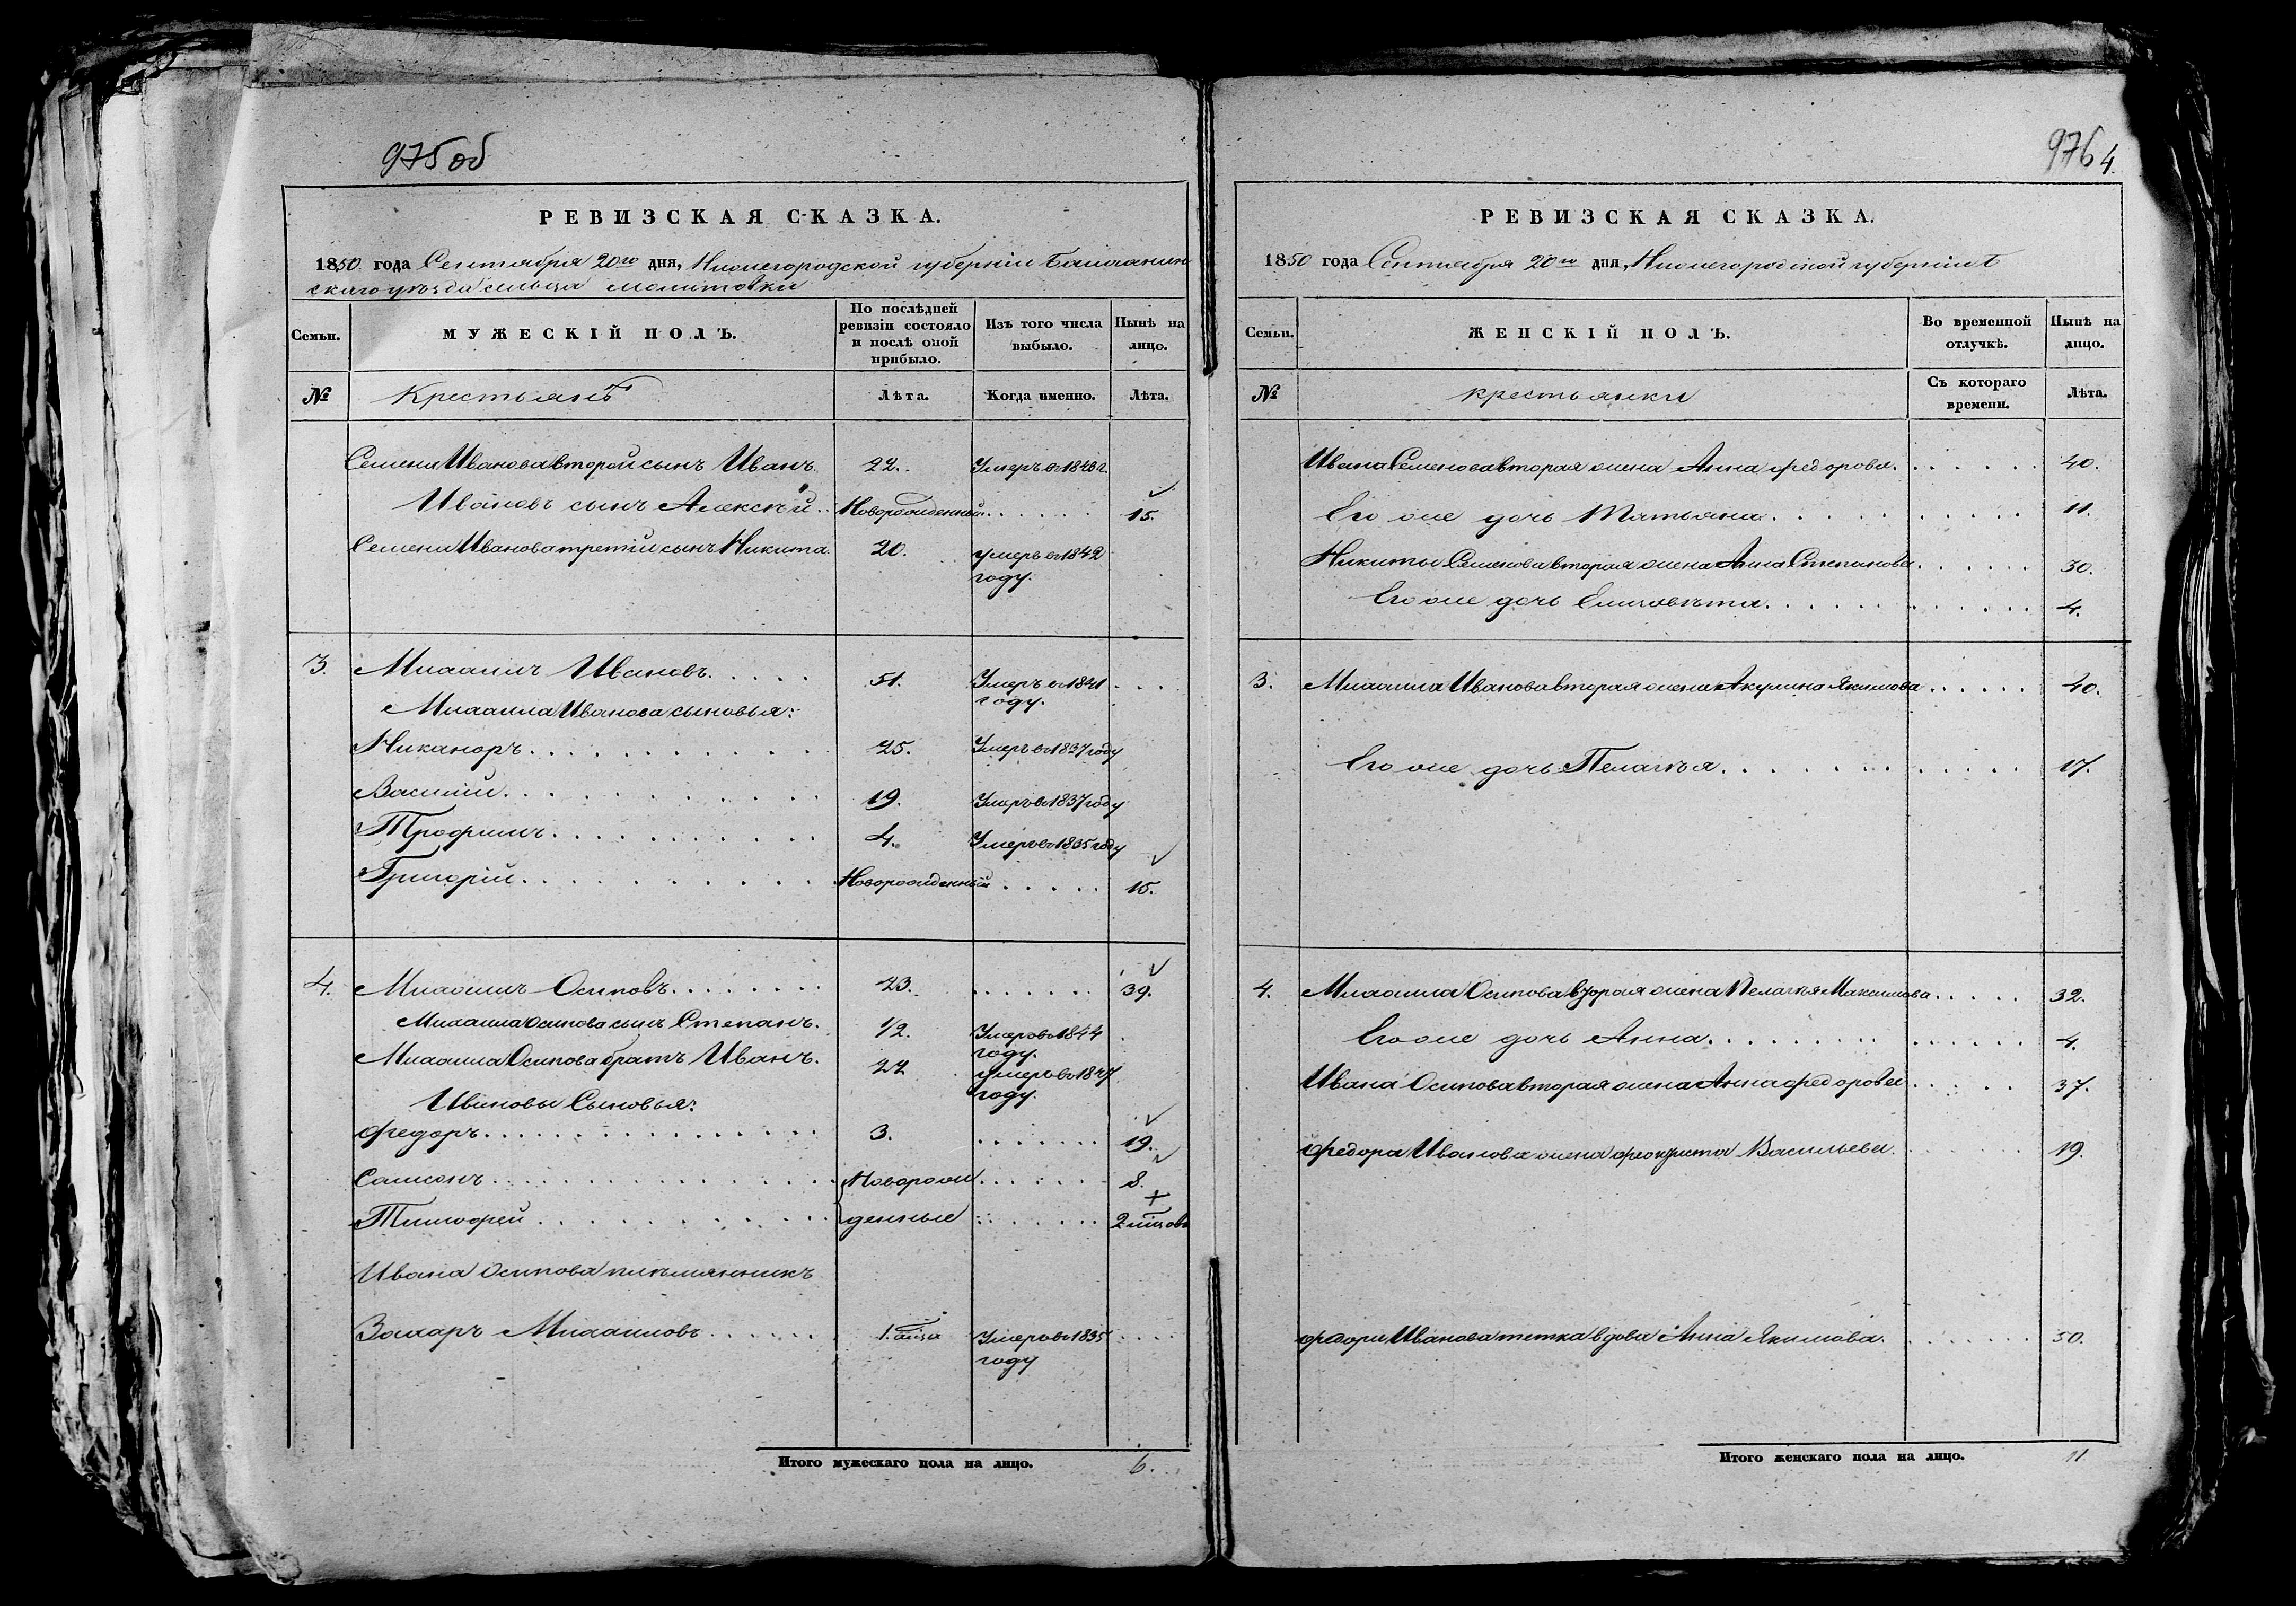 975 об
РЕВИЗСКАЯ СКАЗКА.
1850. года Сентября 20го дня, Нижегородской губерніи Балахнин
скаго уѣзда сельца Молитовки
Семьи.
МУЖЕСКІЙ ПОЛЪ.
По послѣдней ревизіи состояло и послѣ оной прибыло.
Изъ того числа выбыло.
Нынѣ на лицо.
№ Крестьянъ Лѣта. Когда именно. Лѣта.
Семена Иванова второй сынъ Иванъ. 22. Умеръ въ
Ивановъ сынъ Алексѣй. Новорожденный 15.
Семена Иванова третій сынъ Никита. 20. умеръ въ 1842
году.
3. Михаилъ Ивановъ. 51. Умеръ въ 1841
году.
Михаила Иванова сыновья:
Никаноръ. 25. Умеръ въ 1837 году
Василій. 19. Умеръ въ 1837 году
Трофимъ. 4. Умеръ въ 1835 году
Григорій. Новорожденный 15.
4. Михаилъ Осиповъ. 23. 39.
Михаила Осипова сынъ Степанъ. 1/2. Умеръ въ 1844
году.
Михаила Осипова братъ Иванъ. 22 умеръ въ 1847
году.
Ивановы Сыновья:
Федоръ. 3. 19.
Самсонъ. Новорож 8.
Тимофей. денные 2 мцовъ
Ивана Осипова племянникъ
Захаръ Михаиловъ. 1. мца Умеръ въ 1835
году
Итого мужескаго пола на лицо. 6.
976 4.
РЕВИЗСКАЯ СКАЗКА.
1850 года Сентября 20го дня, Нижегородской губерніи
Семьи.
ЖЕНСКІЙ ПОЛЪ.
Во временной отлучкѣ.
Нынѣ на лицо.
№ крестьянки Съ котораго времени. Лѣта.
Ивана Семенова вторая жена Анна Федорова. 40.
Его же дочь Татьяна. 11.
Никиты Семенова вторая жена Анна Степанова. 30.
Его же дочь Елизовѣта. 4.
3. Михаила Иванова вторая жена Акулина Якимова. 40.
Его же дочь Пелагѣя. 17.
4. Михаила Осипова вторая жена Пелагѣя Максимова. 32.
Его же дочь Анна. 4.
Ивана Осипова вторая жена Анна Федорова. 37.
Федора Иванова жена Васильева. 19.
Федора Иванова тетка вдова Анна Якимова. 50.
Итого женскаго пола на лицо. 11